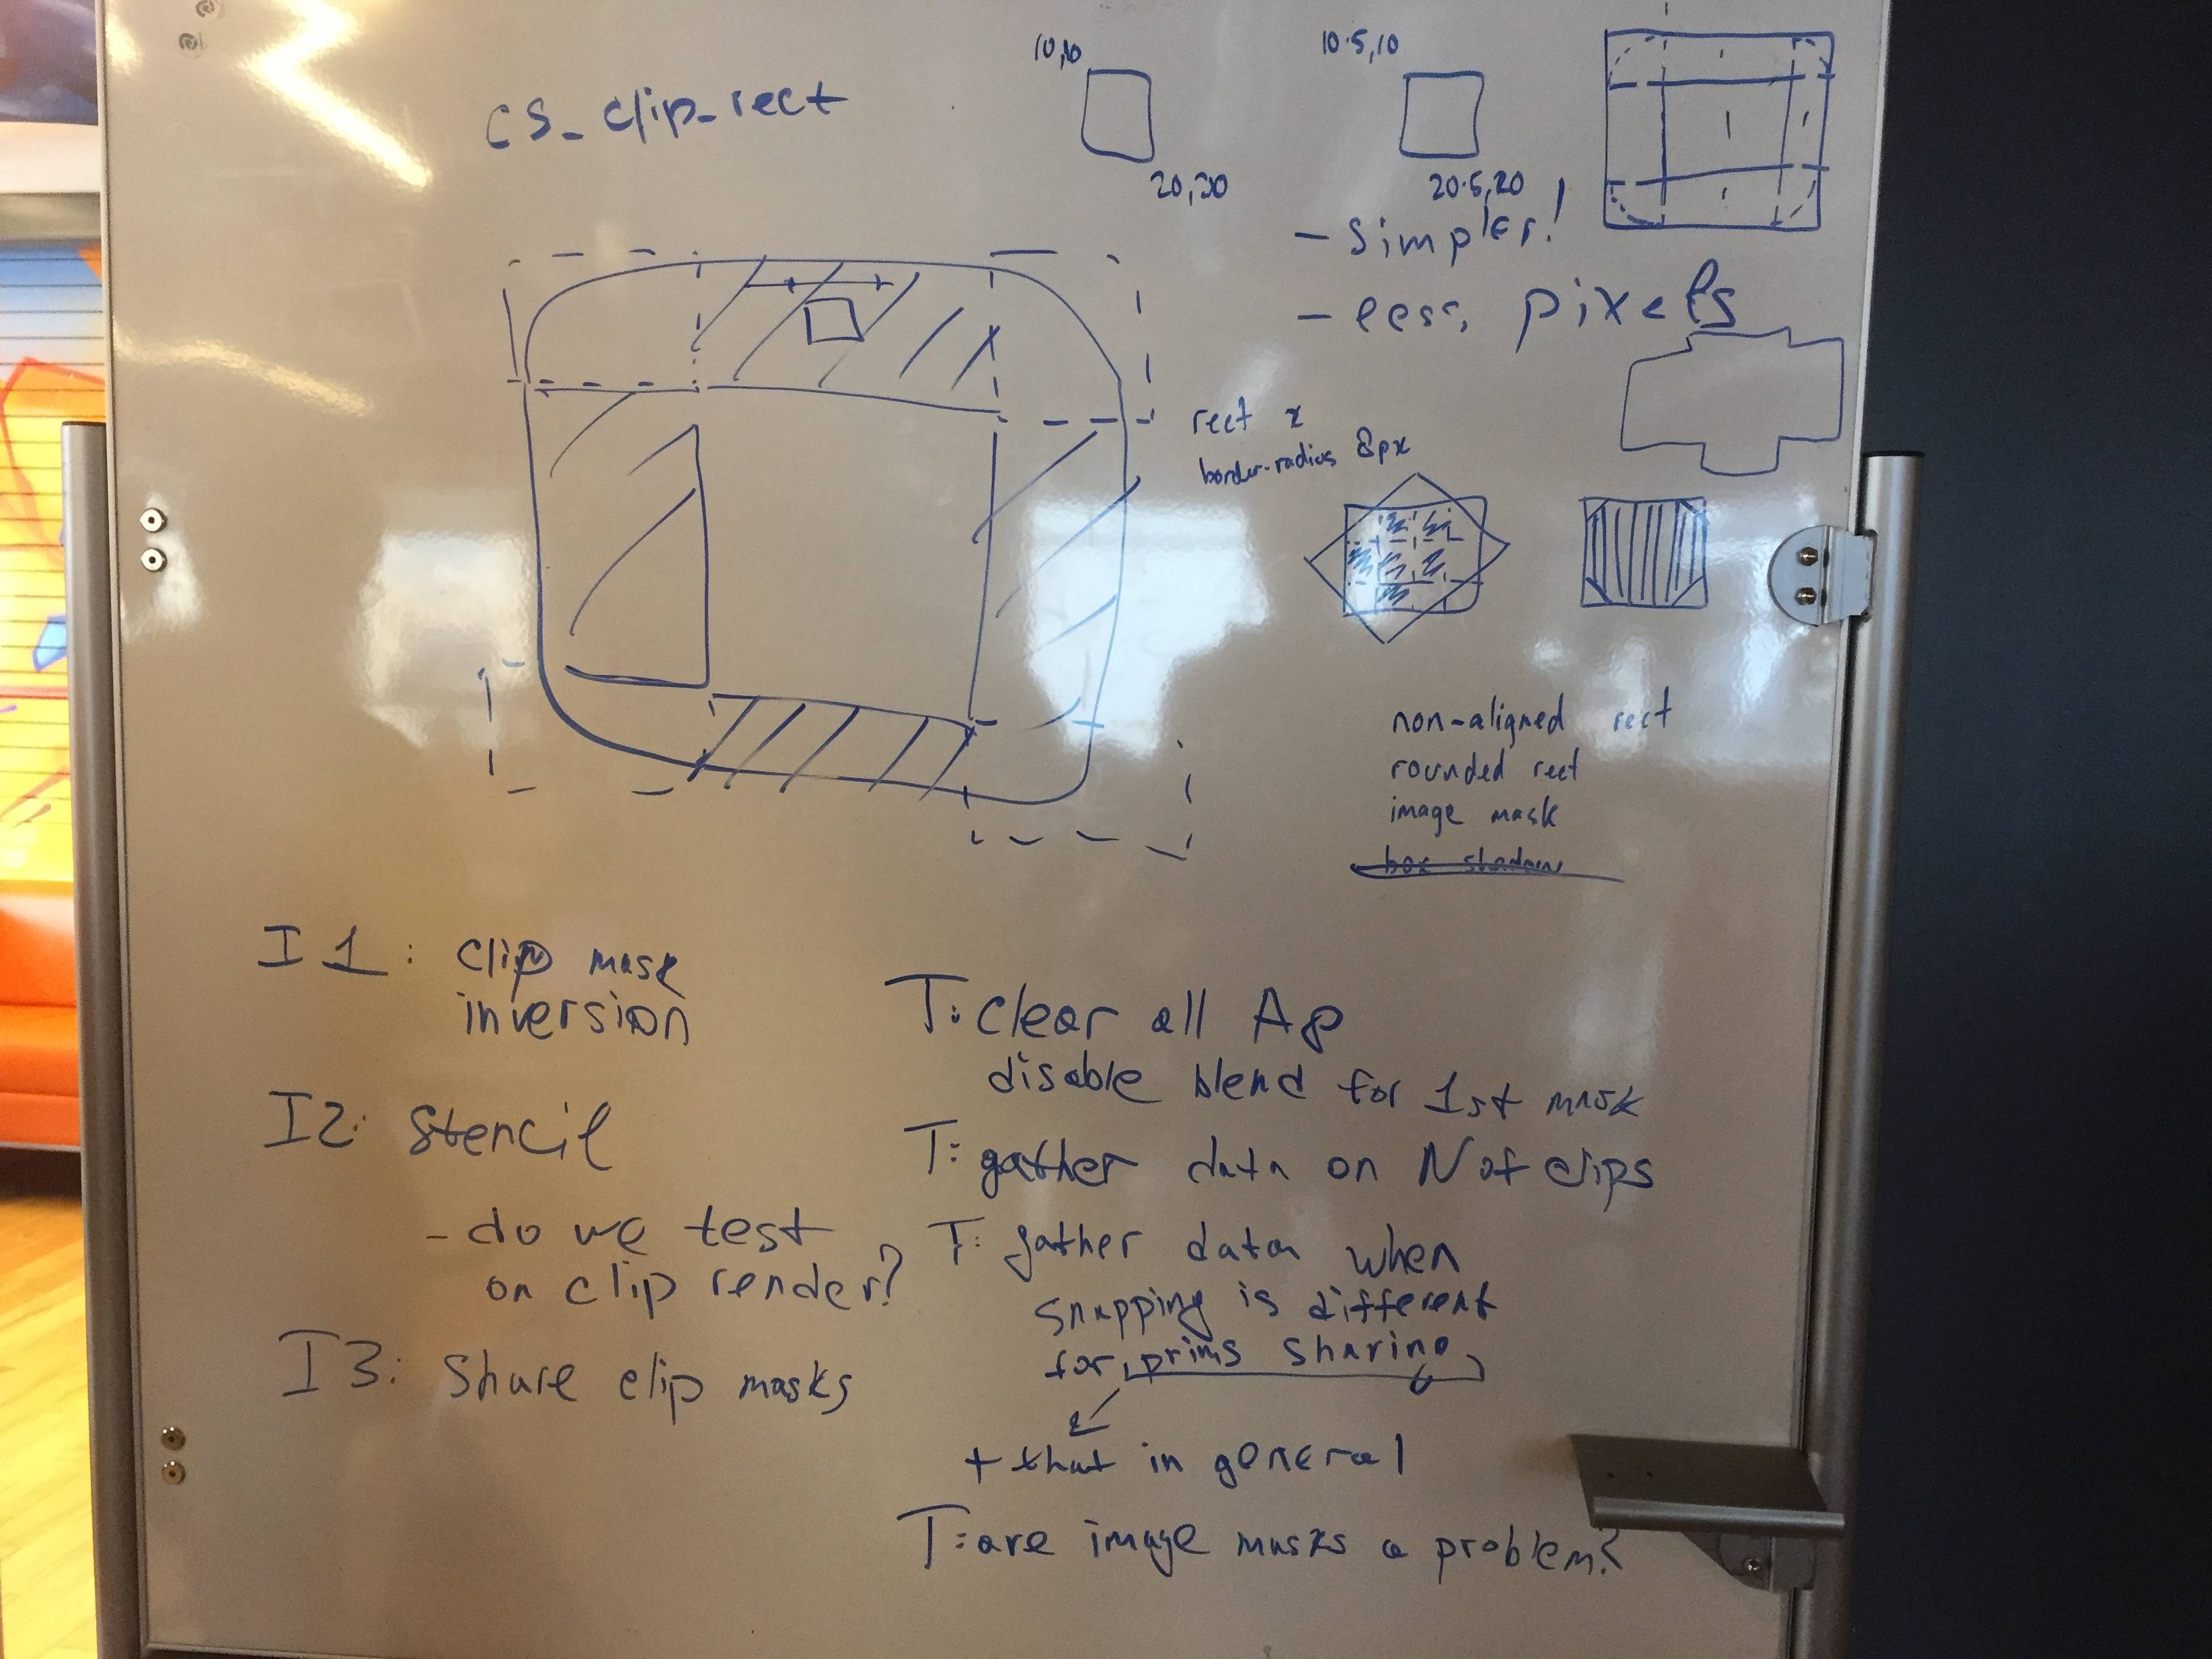 cs_clip_rect
10,10
20,20
10.5,10
20.5,20
- simpler!
- less pixels
rect x
border-radius 8px
non-aligned rect
rounded rect
image mask
box shadow
I1: clip mask
inversion
I2: Stencil
- do we test
on clip render?
I3: Share clip masks
T: clear all A8
disable blend for 1st mask
T: gather data on N of clips
T: gather data when
snapping is different
for prims sharing
+ that in general
T: are image masks a problem?